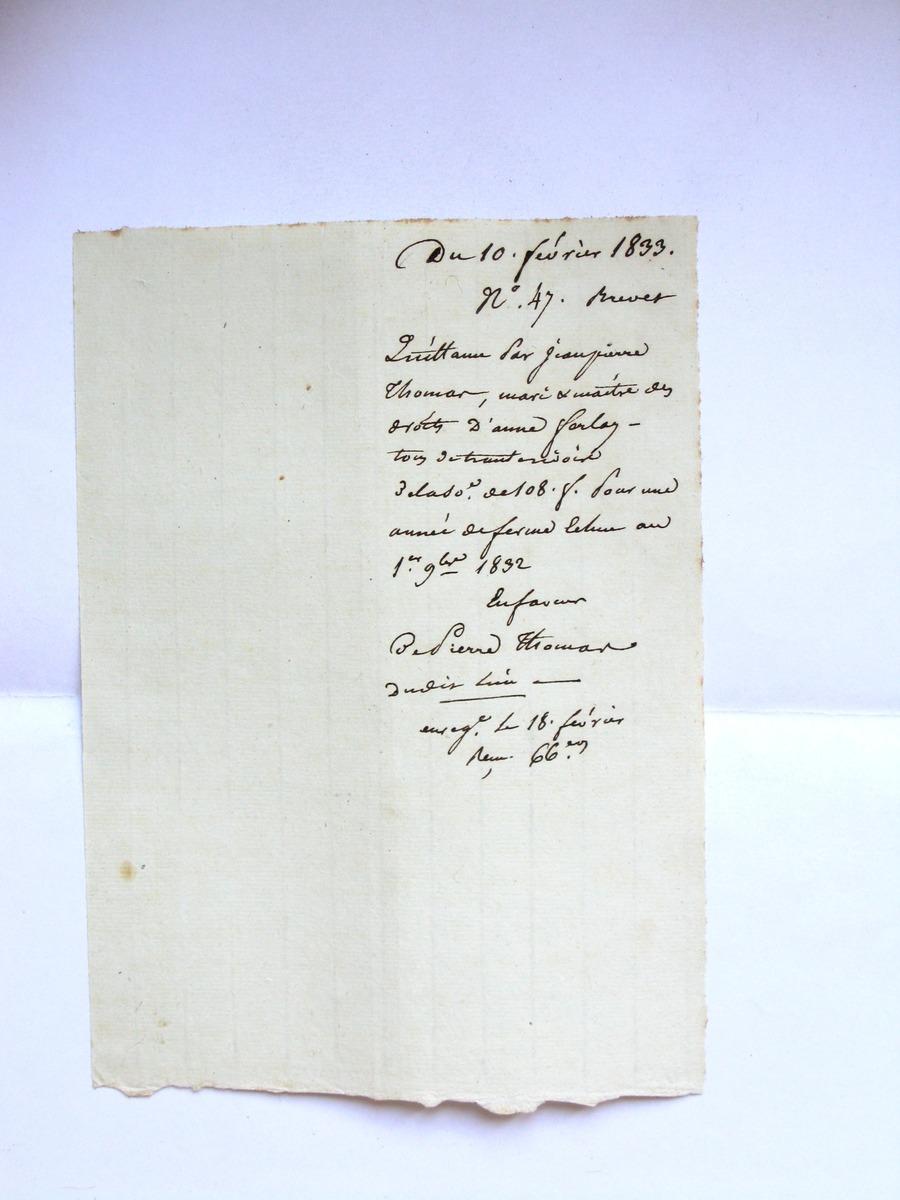 Du 10. février 1833.
N.° 47. Brevet
Quittance par Jeanpierre
Thomas, mari & maître des
droits D'anne
tous de
De la so.e de 108. f. Pour une
année de ferme Echue au
1.er 9bre 1832
En faveur
De Pierre Thomas
Dudit lieu —
enreg.é le 18. février
Reçu. 66.